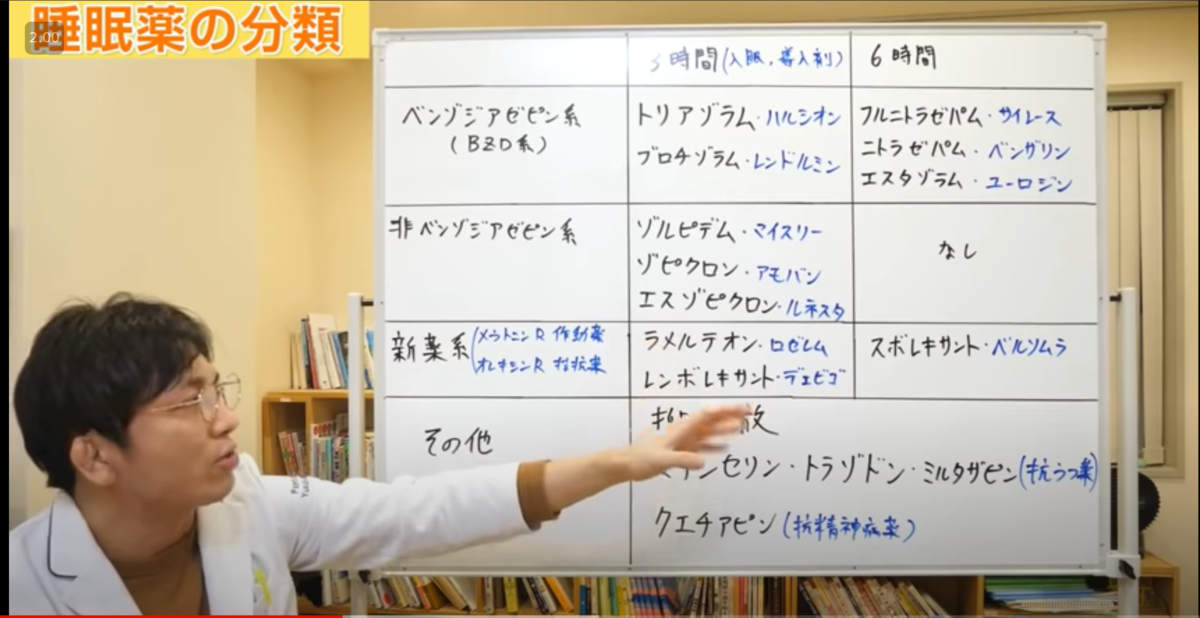 睡眠薬の分類
2:00
3時間(入眠,導入剤)
6時間
ベンゾジアゼピン系
(BZD系)
トリアゾラム・ハルシオン
ブロチゾラム・レンドルミン
フルニトラゼパム・サイレース
ニトラゼパム・ベンザリン
エスタゾラム・ユーロジン
非ベンゾジアゼピン系
ゾルピデム・マイスリー
ゾピクロン・アモバン
エスゾピクロン・ルネスタ
なし
新薬系
メラトニンR 作動薬
オレキシンR 拮抗薬
ラメルテオン・ロゼレム
レンボレキサント・デエビゴ
スボレキサント・ベルソムラ
その他
散
ンセリン・トラゾドン・ミルタザピン(抗うつ薬)
クエチアピン(抗精神病薬)